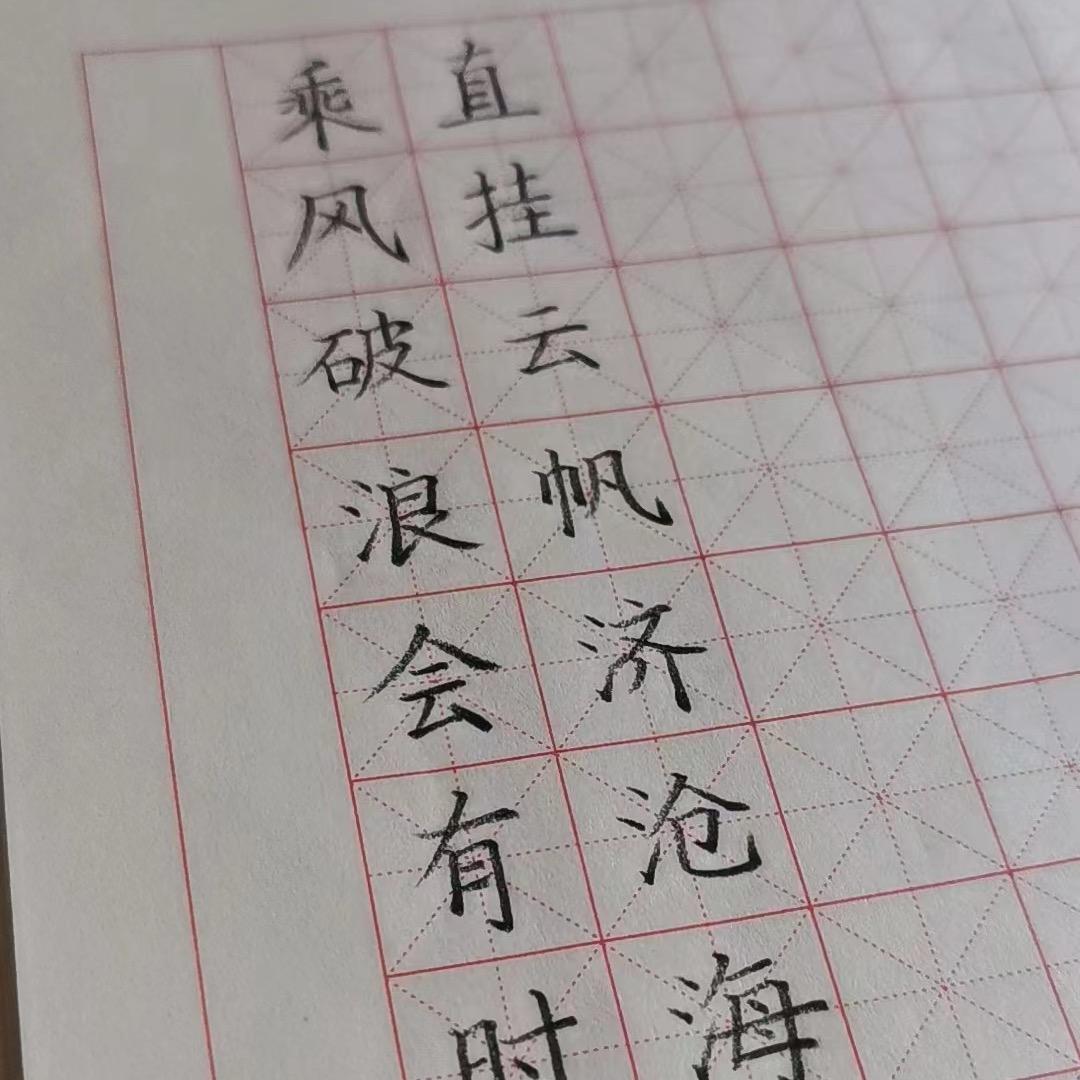 乘风破浪会有时
直挂云帆济沧海